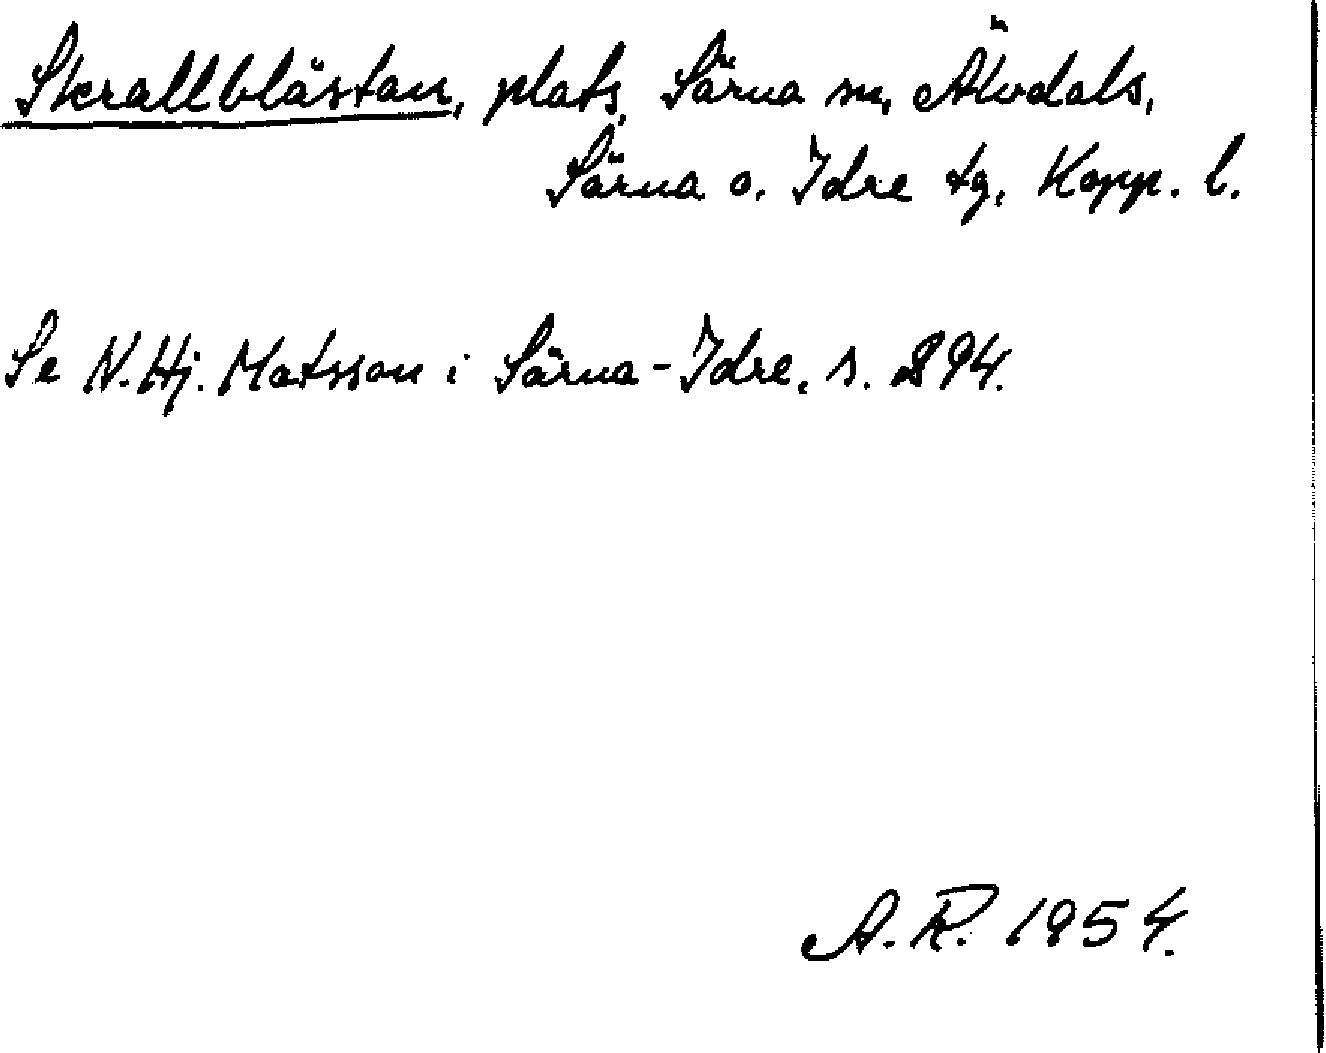 Skrallblästan, plats, Särna sn, Älvdals,
Särna o. Idre tg, Kopp. l.
Se N. Hj. Matsson i Särna-Idre, s. 294.
A. R. 1954.